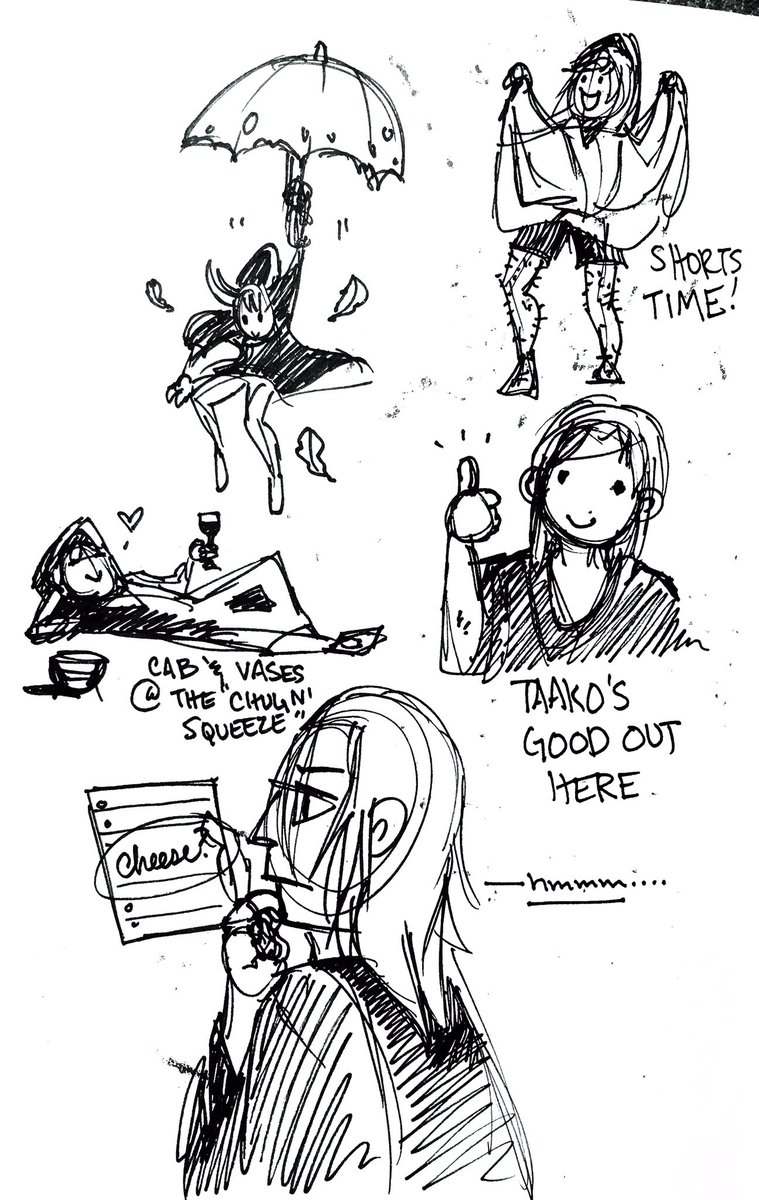 SHORTS
TIME!
CAB & VASES
@ THE "CHUG N'
SQUEEZE"
TAAKO'S
GOOD OUT
HERE
Cheese?
—hmmm....